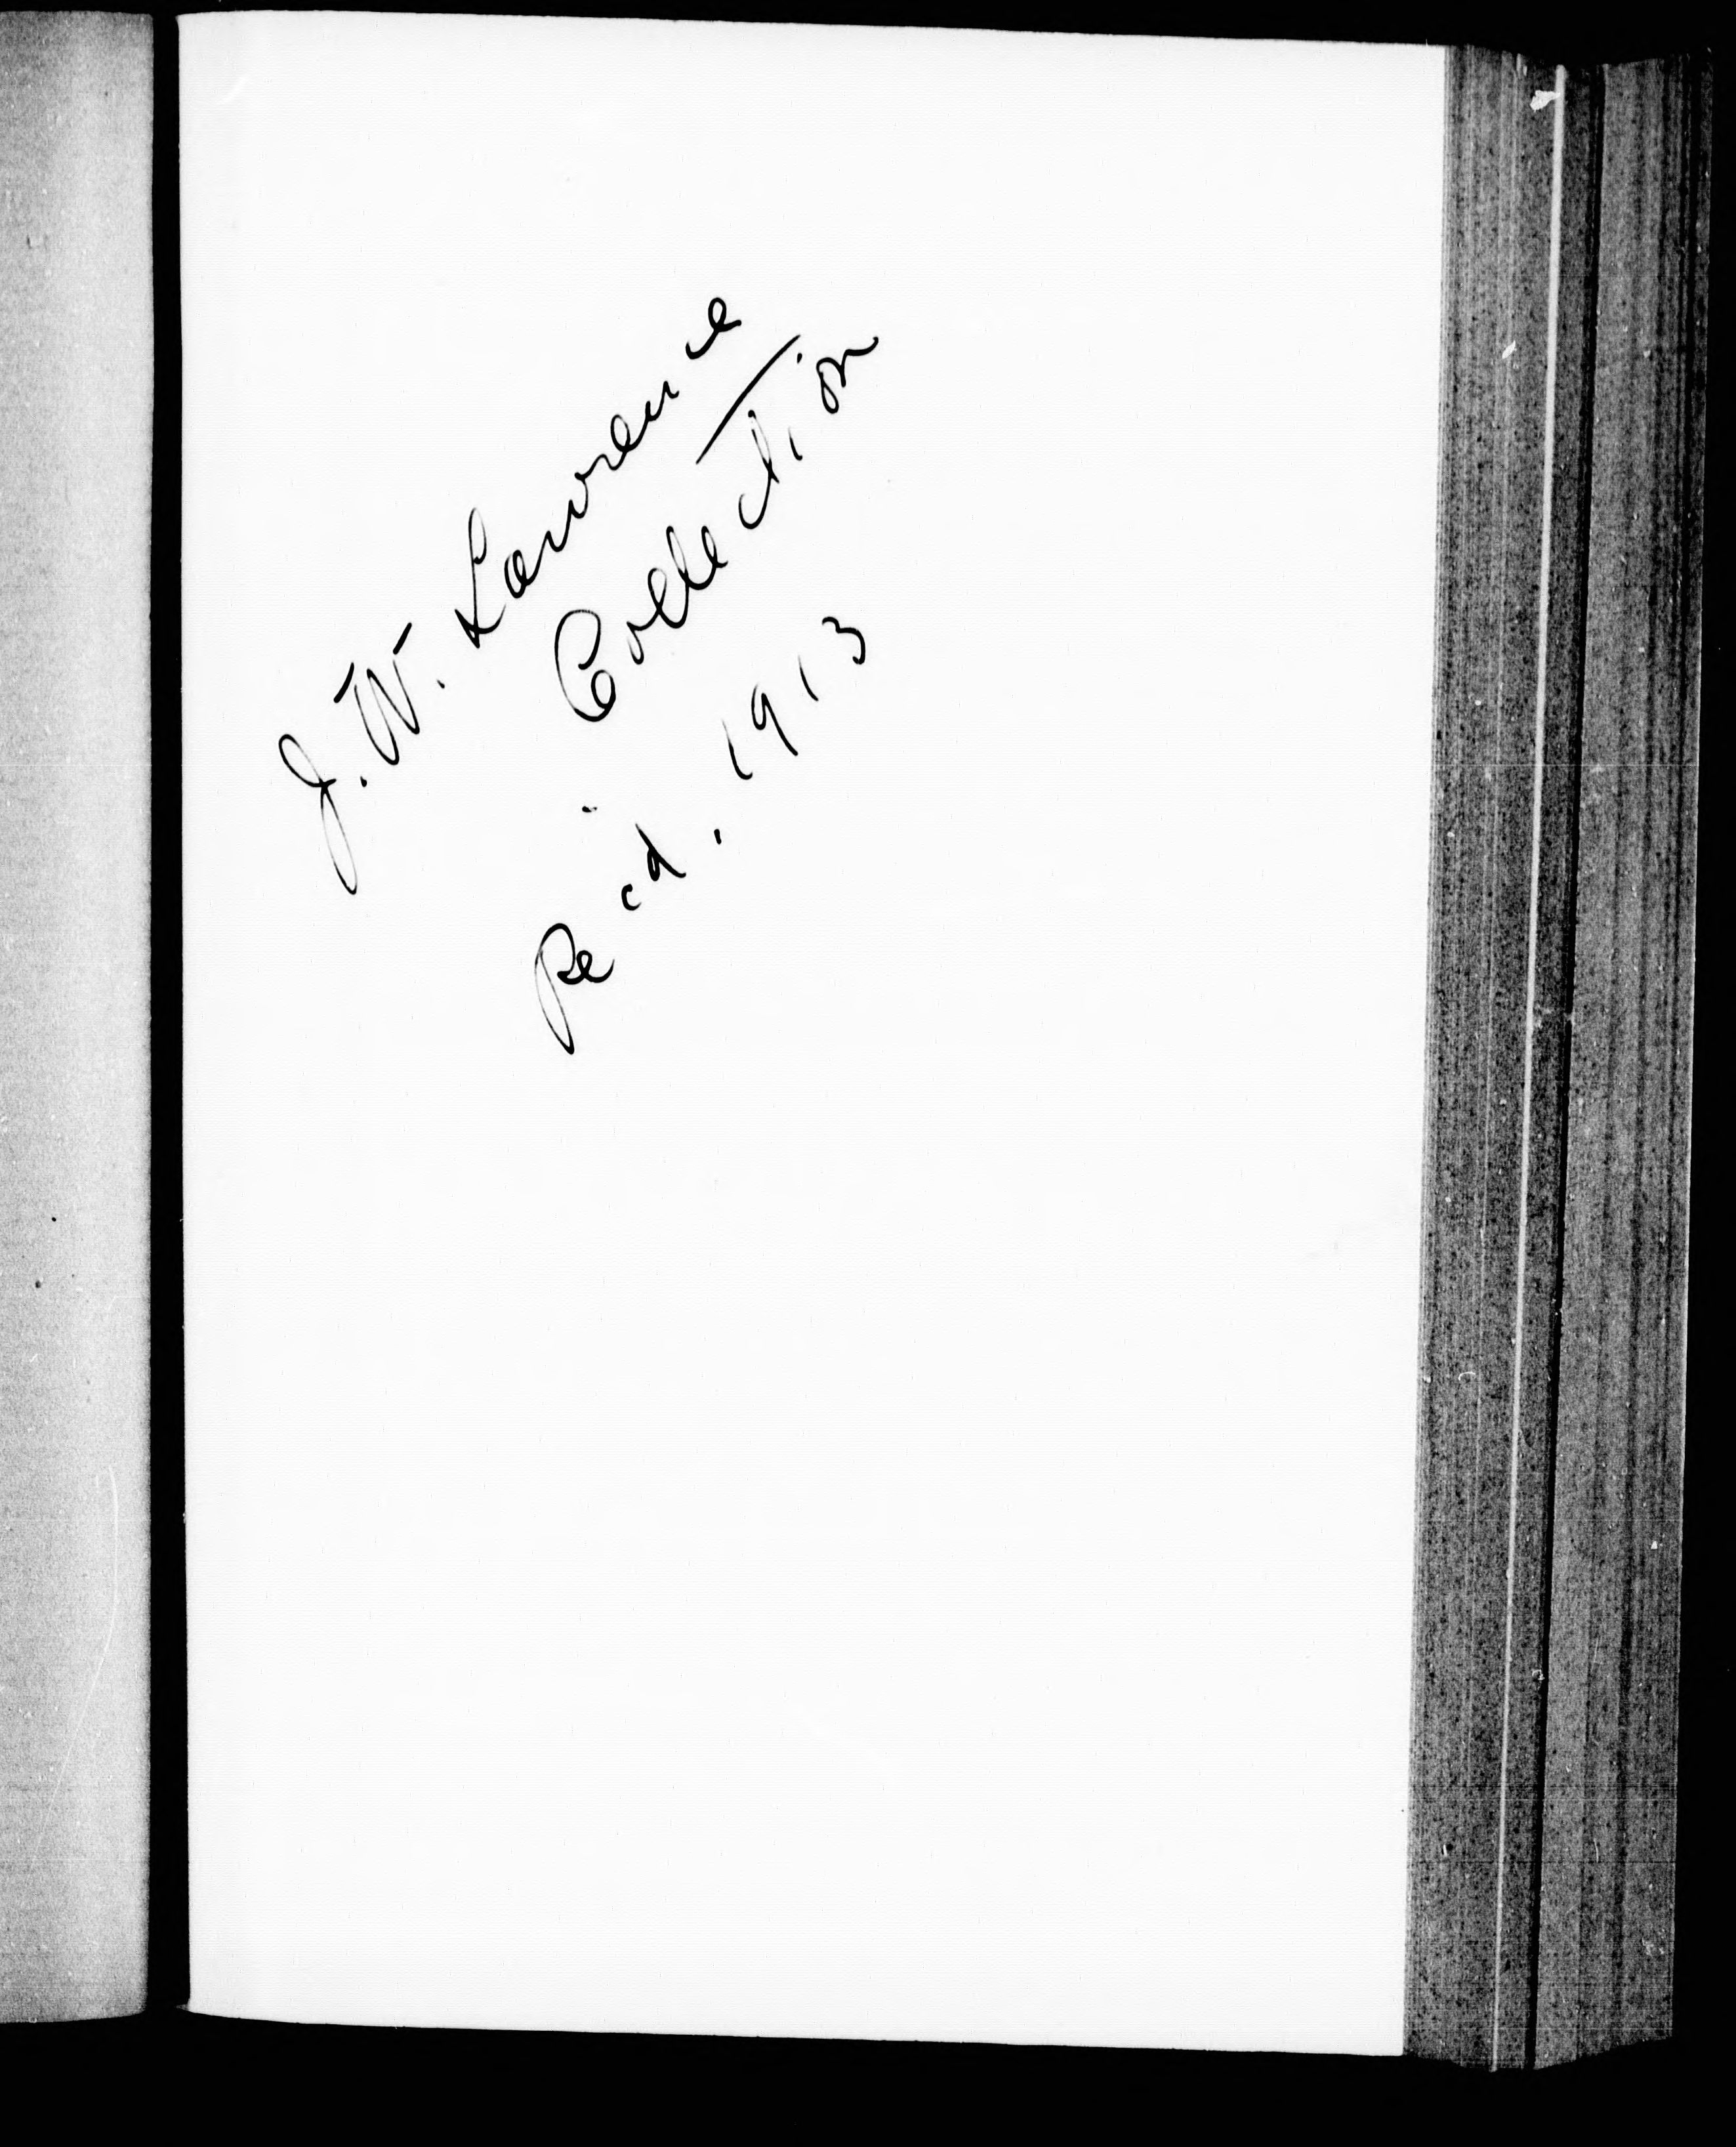 J. W. Lawrence
Collection
Rec'd. 1913